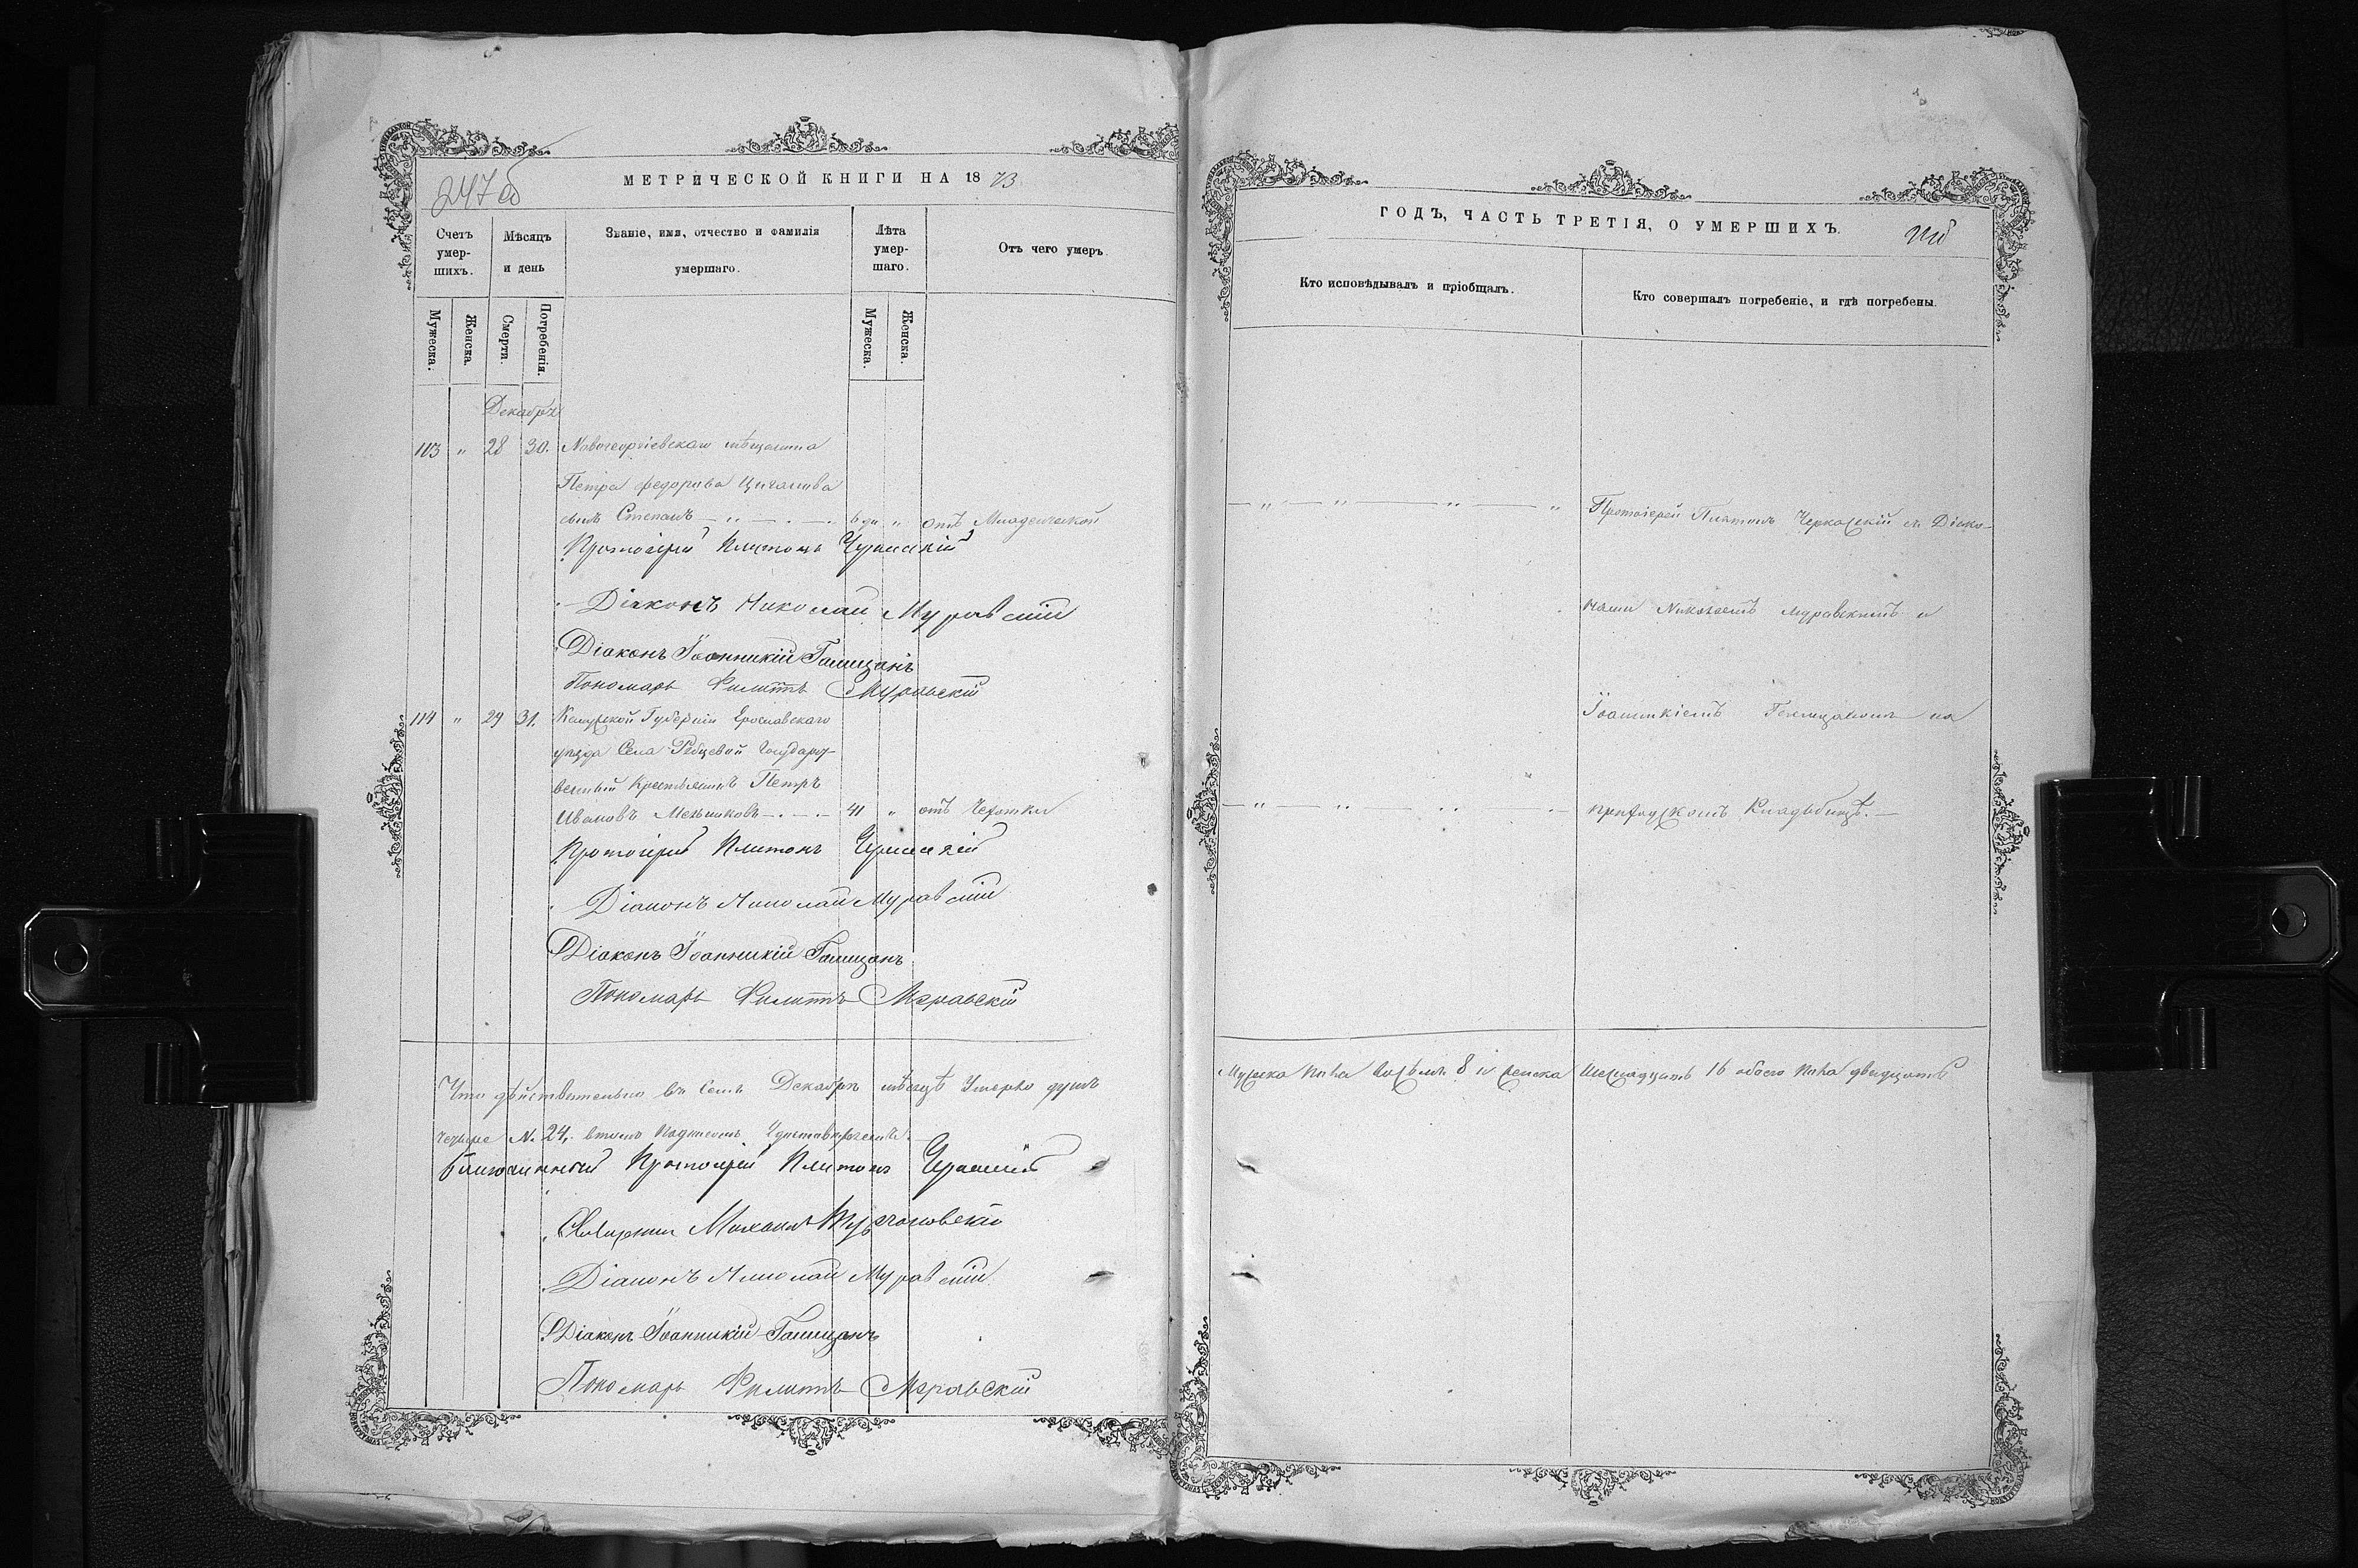 247 об
МЕТРИЧЕСКОЙ КНИГИ НА 1873
Счетъ умер-шихъ.
Мѣсяцъ и день
Званіе, имя, отчество и фамилія умершаго.
Лѣта умер-шаго.
Отъ чего умеръ.
Мужеска.
Женска.
Смерти.
Погребенія.
Мужеска.
Женска.
Декабрь
113 " 28 30. Новогеоргіевскаго мѣщанина
Петра Федорова Циганива
сынъ Степанъ — " — . — . 6 дн " отъ Младенческой
Протоіерей Платонъ Черкасскій
Діаконъ Николай Муравскій
Діаконъ Іоанникій Галицанъ
Пономарь Филиппъ Муравскій
114 " 29 31. Калужской Губерніи Ерославскаго
уѣзда Села Государст-
венный Крестьянинъ Петръ
Ивановъ Мельниковъ — . — . — 41 " отъ Чехотки
Протоіерей Платонъ Черкасскій
Діаконъ Николай Муравскій
Діаконъ Іоанникій Галицанъ
Пономарь Филиппъ Муравскій
Что дѣйствительно въ семъ Декабрѣ мѣсяцѣ Умерло душъ
четыре № 24, втомъ Подписомъ
Протоіерей Платонъ Черкасскій
Священникъ Михаилъ
Діаконъ Николай Муравскій
Діаконъ Іоанникій Галицанъ
Пономарь Филиппъ Муравскій
ГОДЪ, ЧАСТЬ ТРЕТІЯ, О УМЕРШИХЪ.
Кто исповѣдывалъ и пріобщалъ.
Кто совершалъ погребеніе, и гдѣ погребены.
— " — " — " — " Протоіерей Платонъ Черкасскій съ Діако-
нами Николаемъ Муравскимъ и
Іоанникіемъ Галицаномъ на
— " — " — " — " приходскомъ Кладбищѣ. —
Мужска пола восѣмъ 8 и женска шеснадцать 16 обоего пола двадцать